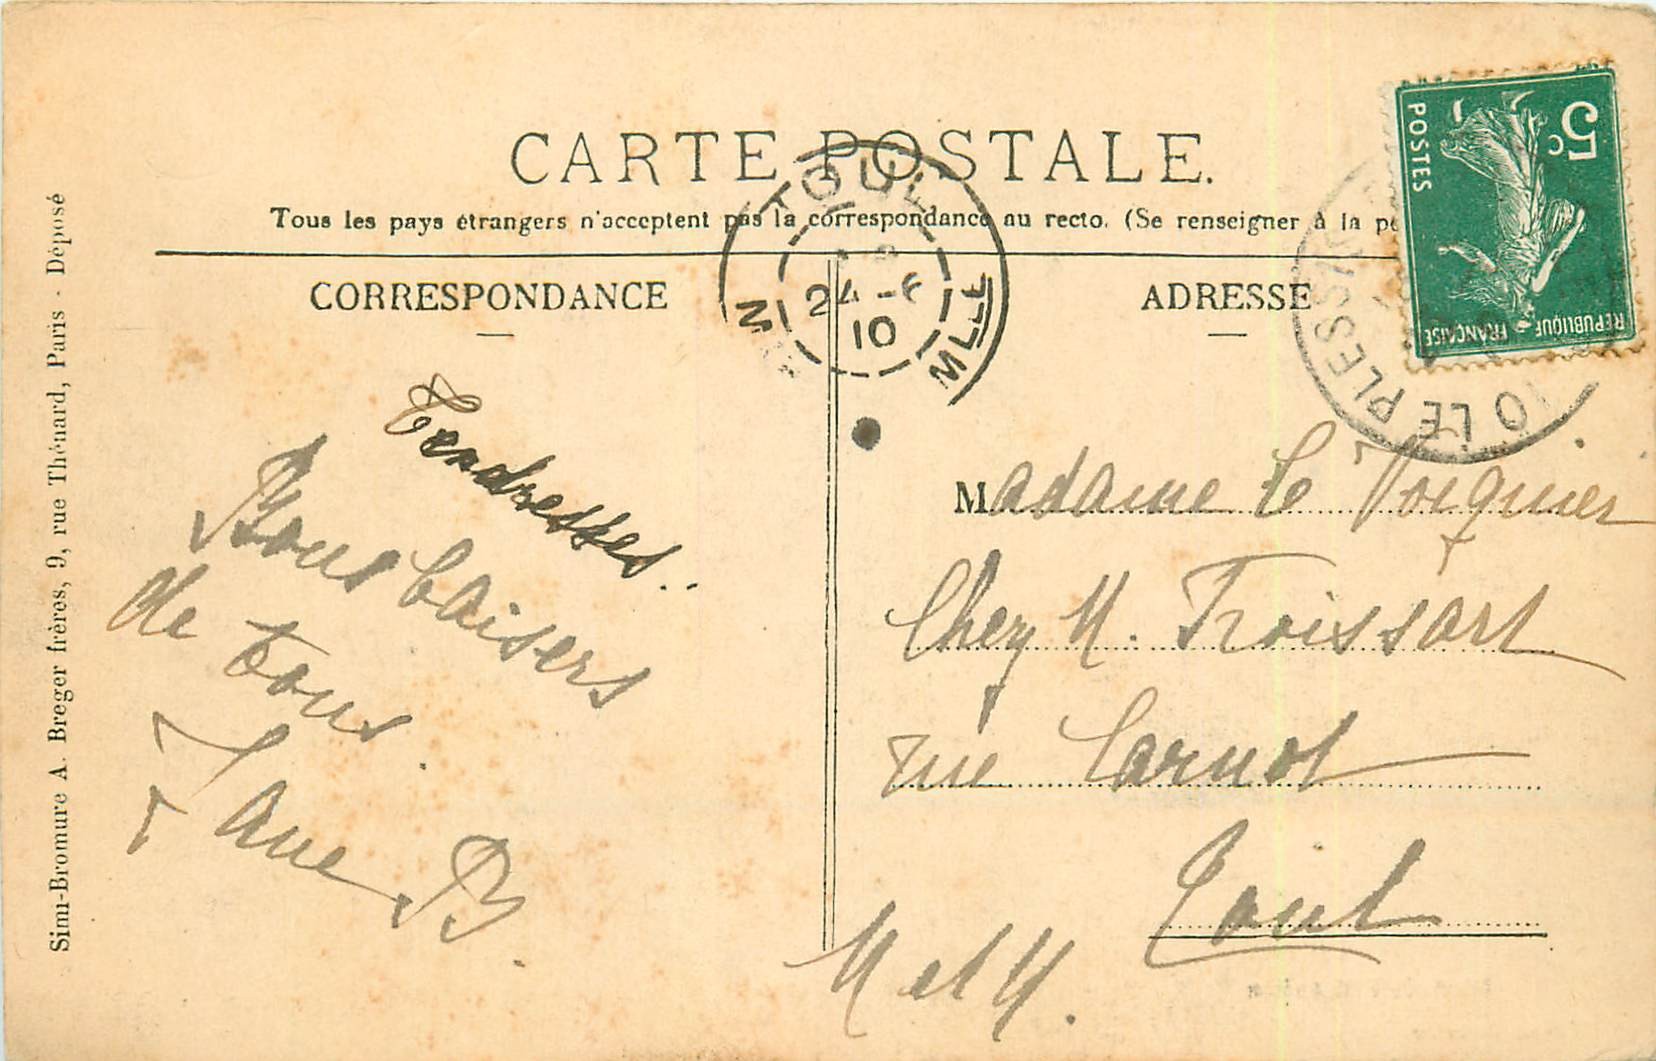 CARTE POSTALE.
Tous les pays étrangers n'acceptent pas la correspondance au recto. (Se renseigner à la
CORRESPONDANCE
ADRESSE
TOUL
24 -6
10
MLLE
5c
POSTES
REPUBLIQUE FRANÇAISE
LE PLESSIS
Simi-Bromure A. Breger frères, 9, rue Thénard, Paris - Déposé
Tendresses..
Bons baisers
de tous.
B.
Madame Le
Chez M. Froissart
rue Carnot
Toul
M et M.